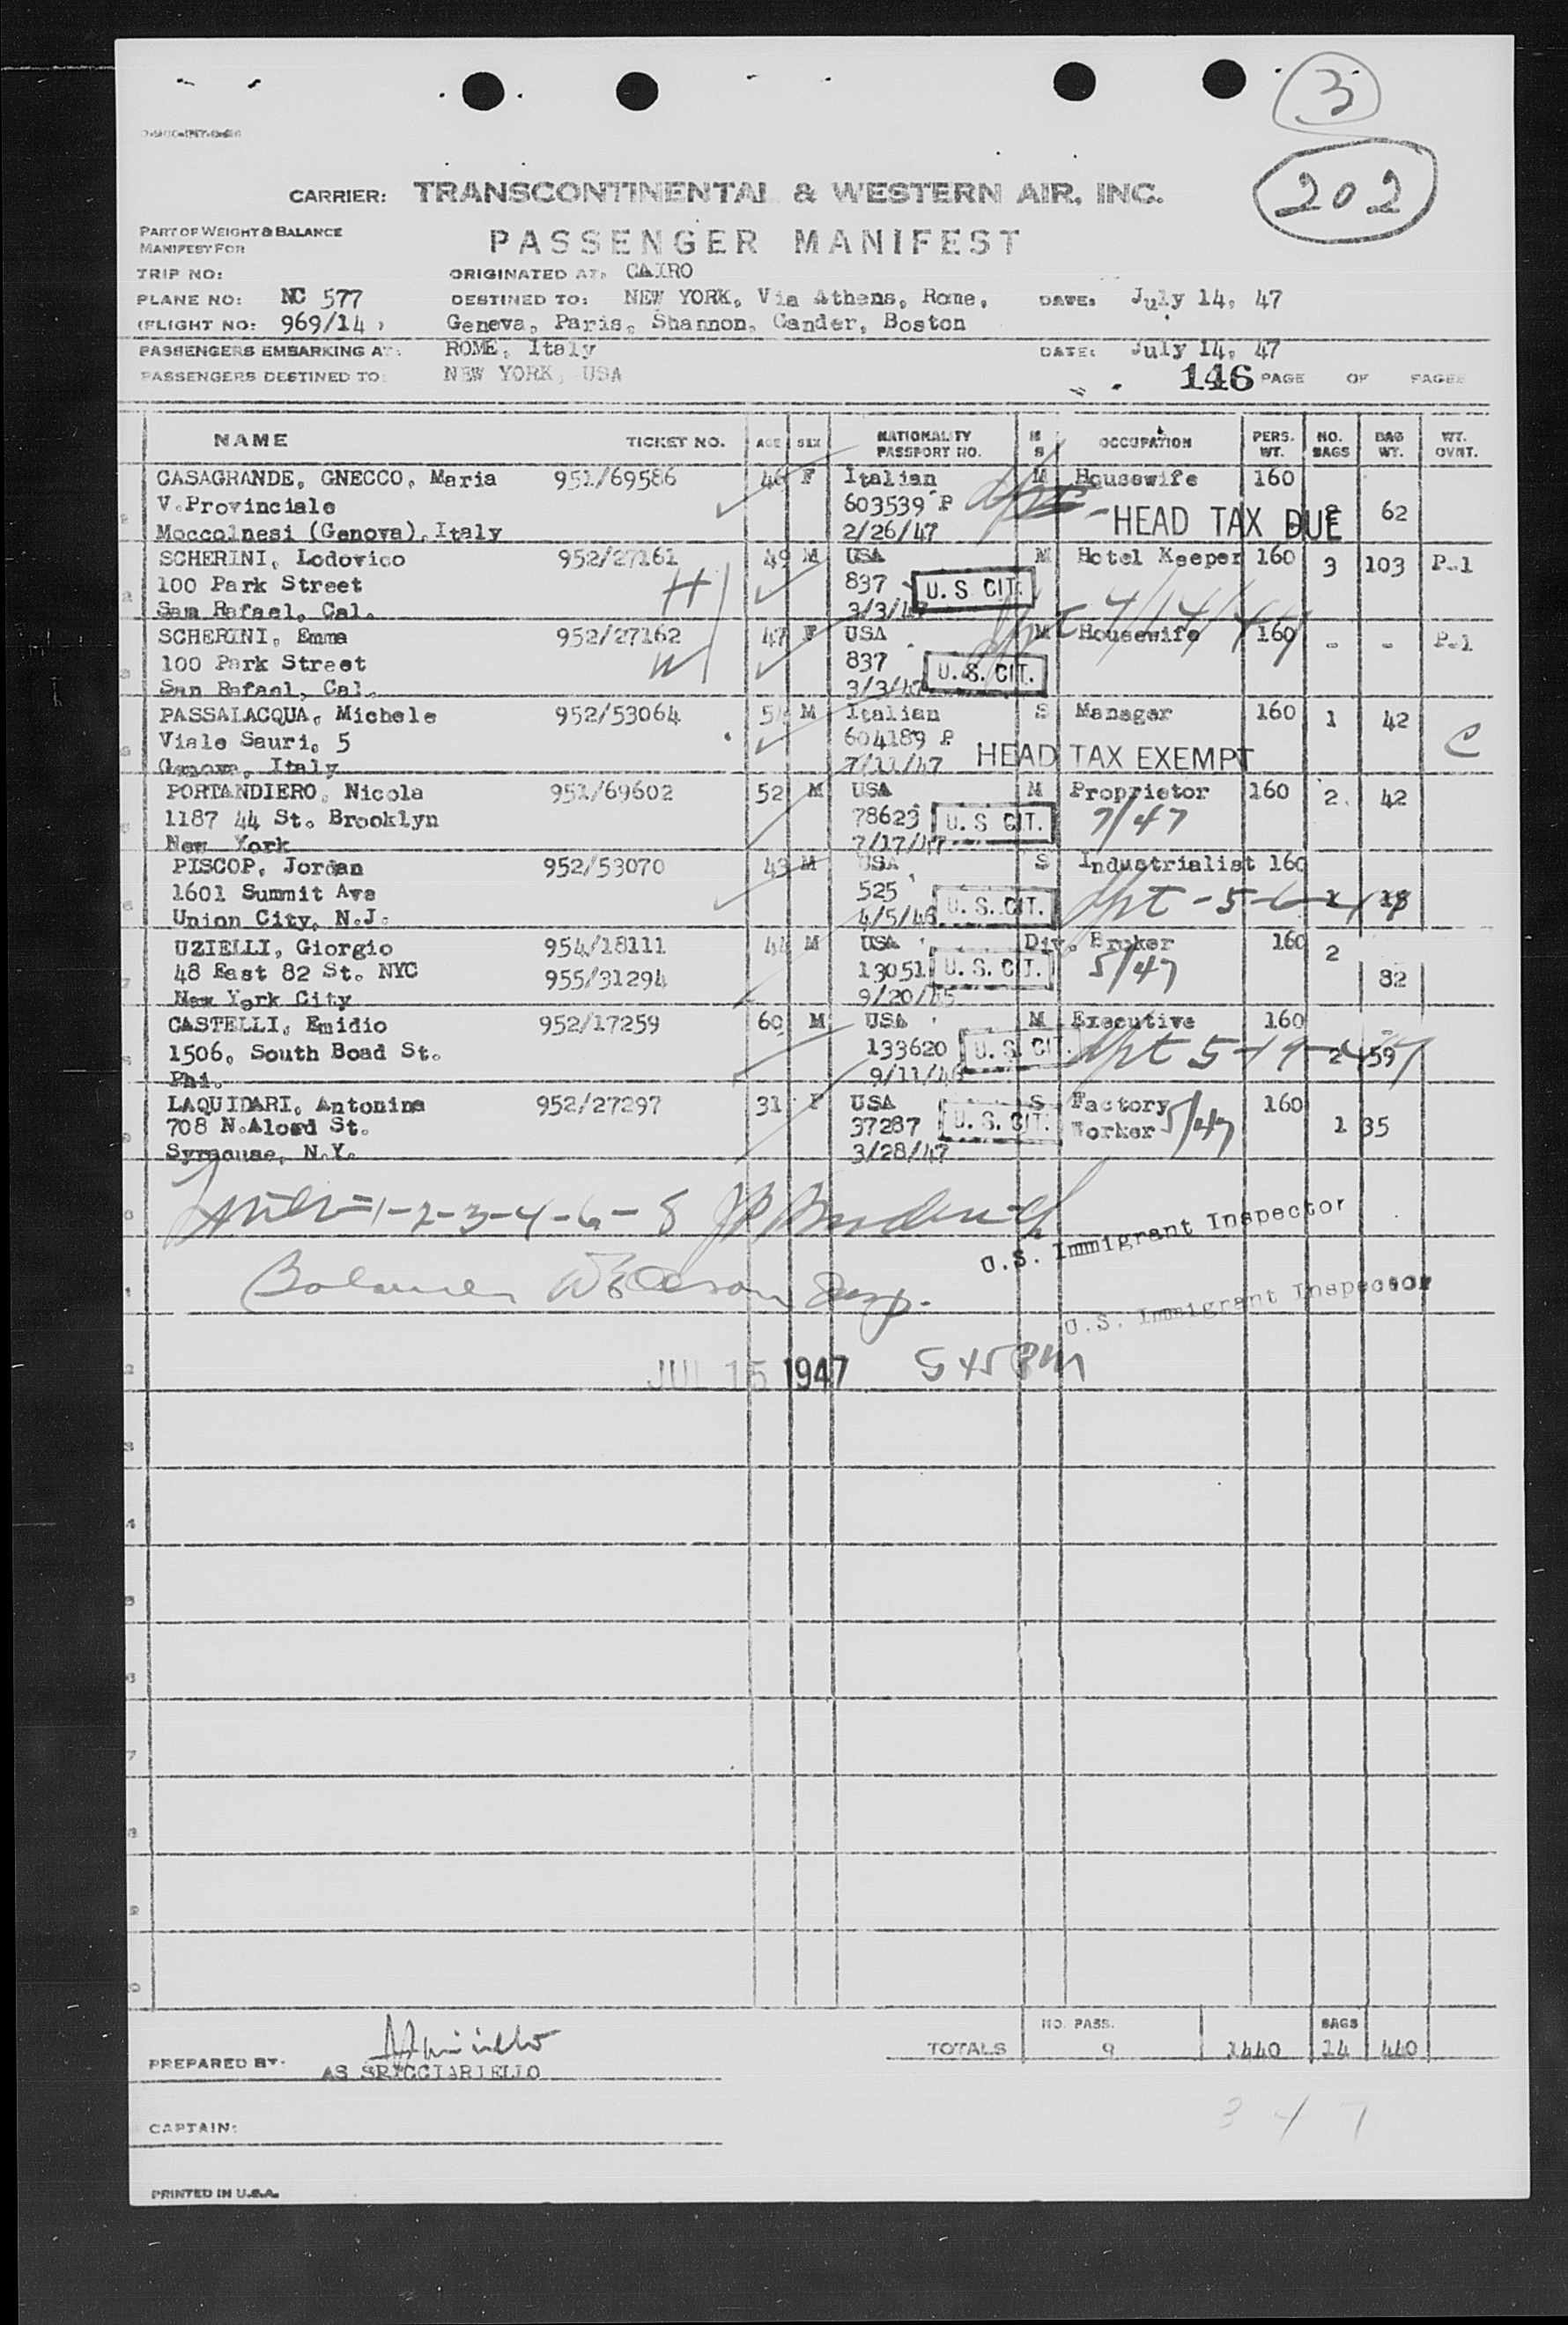 3
202
CARRIER: TRANSCONTINENTAL & WESTERN AIR, INC.
PART OF WEIGHT & BALANCE
MANIFEST FOR
PASSENGER MANIFEST
TRIP NO: ORIGINATED AT: CAIRO
PLANE NO: NC 577 DESTINED TO: NEW YORK, Via Athens, Rome, DATE: July 14, 47
(FLIGHT NO: 969/14) Geneva, Paris, Shannon, Gander, Boston
PASSENGERS EMBARKING AT: ROME, Italy DATE: July 14, 47
PASSENGERS DESTINED TO: NEW YORK, USA 146 PAGE OF PAGES
NAME TICKET NO. AGE SEX NATIONALITY PASSPORT NO. M S OCCUPATION PERS. WT. NO. BAGS BAG WT. WT. OVNT.
CASAGRANDE, GNECCO, Maria 951/69586 46 F Italian M Housewife 160
V.Provinciale 603539 P HEAD TAX DUE 62
Moccolnesi (Genova), Italy 2/26/47
SCHERINI, Lodovico 952/27161 49 M USA M Hotel Keeper 160 3 103 P-1
100 Park Street H 837 U. S. CIT.
San Rafael, Cal. 3/3/47
SCHERINI, Emma 952/27162 47 F USA M Housewife 160 - - P-1
100 Park Street W 837 U. S. CIT.
San Rafael, Cal. 3/3/47
PASSALACQUA, Michele 952/53064 M Italian S Manager 160 1 42
Viale Sauri, 5 604189 P HEAD TAX EXEMPT C
Genova, Italy 7/11/47
PORTANDIERO, Nicola 951/69602 52 M USA M Proprietor 160 2 42
1187 44 St. Brooklyn 78623 U. S. CIT. 7/47
New York 7/17/47
PISCOP, Jordan 952/53070 43 M USA S Industrialist 160
1601 Summit Ave 525
Union City, N.J. 4/5/46 U. S. CIT.
UZIELLI, Giorgio 954/18111 44 M USA Div. Broker 160 2
48 East 82 St. NYC 955/31294 13051 U. S. CIT. 5/47 82
New York City 9/20/45
CASTELLI, Emidio 952/17259 60 M USA M Executive 160
1506, South Boad St. 133620 U. S. CIT. 2 59
Phi. 9/11/46
LAQUIDARI, Antonina 952/27297 31 F USA S Factory 160
708 N.Alord St. 37287 U. S. CIT. Worker 5/47 1 35
Syracuse, N.Y. 3/28/47
1-2-3-4-6-8
U.S. Immigrant Inspector
U.S. Immigrant Inspector
JUL 15 1947 545 PM
NO. PASS. BAGS
TOTALS 9 1440 14 440
PREPARED BY:
CAPTAIN:
3 4 7
PRINTED IN U.S.A.